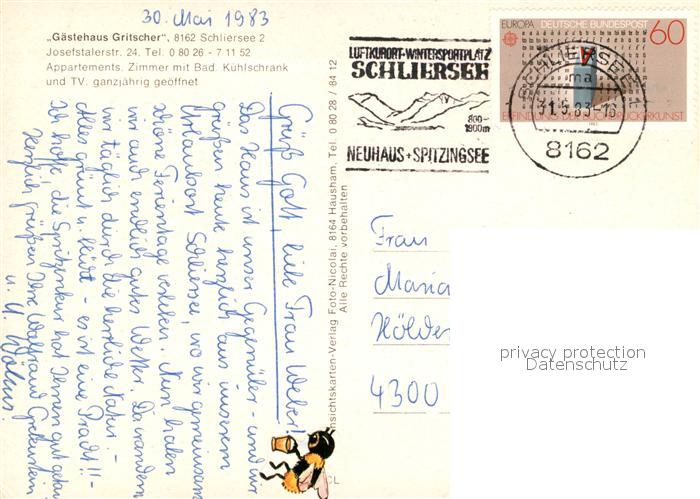 30. Mai 1983
„Gästehaus Gritscher", 8162 Schliersee 2
Josefstalerstr. 24, Tel. 0 80 26 - 7 11 52
Appartements, Zimmer mit Bad, Kühlschrank
und TV. ganzjährig geöffnet
Grüß Gott, liebe Frau Weber!
Das Haus ist unser Gegenüber - und wir
grüßen heute herzlich aus unserem
Urlaubsort Schliersee, wo wir gemeinsam
schöne Ferientage verleben. Nun haben
wir auch endlich gutes Wetter. Da wandern
wir täglich durch die herrliche Natur. -
Alles grünt u. blüht - es ist eine Pracht!! -
Ich hoffe, die Spritzenkur hat Ihnen gut getan,
Herzlich grüßen Ihre Waltraud
u. U.
Ansichtskarten-Verlag Foto-Nicolai, 8164 Hausham, Tel. 0 80 28 / 84 12
Alle Rechte vorbehalten
LUFTKURORT-WINTERSPORTPLATZ
SCHLIERSEE
800-
1900m
NEUHAUS + SPITZINGSEE
EUROPA DEUTSCHE BUNDESPOST 60
ERFINDUNG DER BUCHDRUCKERKUNST
SCHLIERSEE
ma
8162
Frau
Maria
Hölder
4300
privacy protection
Datenschutz